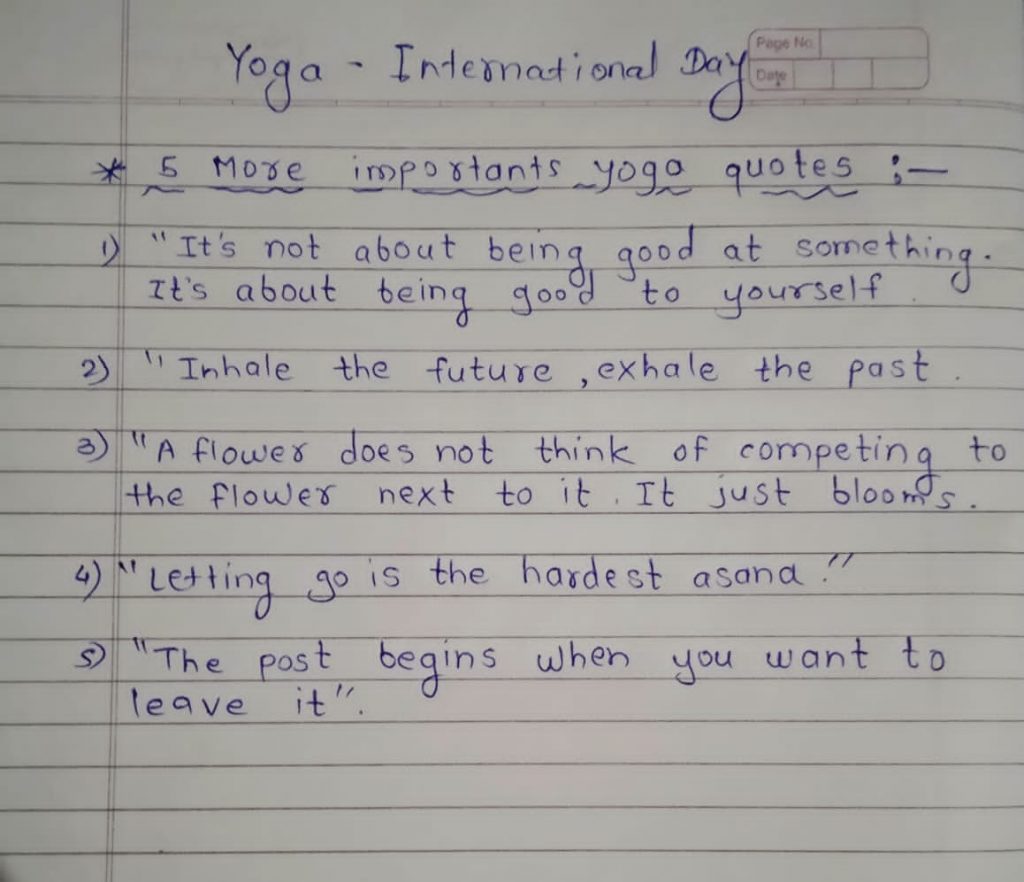 Yoga - International Day
Page No.
Date
* 5 More importants yoga quotes :-
1) "It's not about being good at something.
It's about being good to yourself.
2) "Inhale the future, exhale the past.
3) "A flower does not think of competing to
the flower next to it. It just blooms.
4) "Letting go is the hardest asana."
5) "The post begins when you want to
leave it".